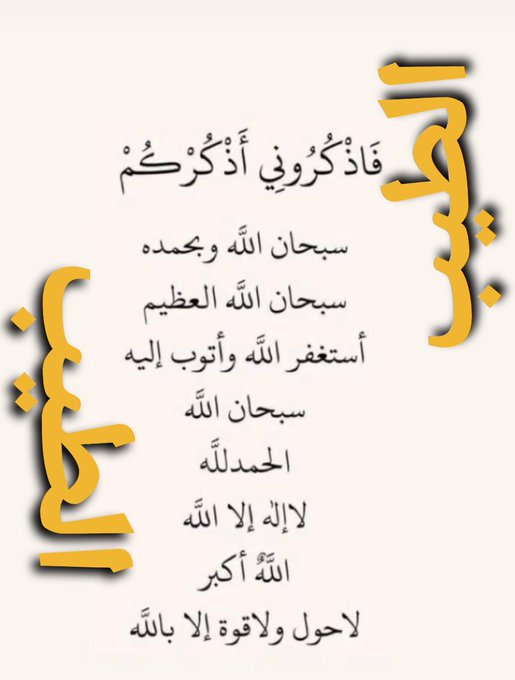 الطيب
فَاذْكُرُونِي أَذْكُرْكُمْ
سبحان اللَّه وبحمده
سبحان اللَّه العظيم
أستغفر اللَّه وأتوب إليه
سبحان اللَّه
الحمدللَّه
لاإلٰه إلا اللَّه
اللَّهُ أكبر
لاحول ولاقوة إلا باللَّه
الطيب